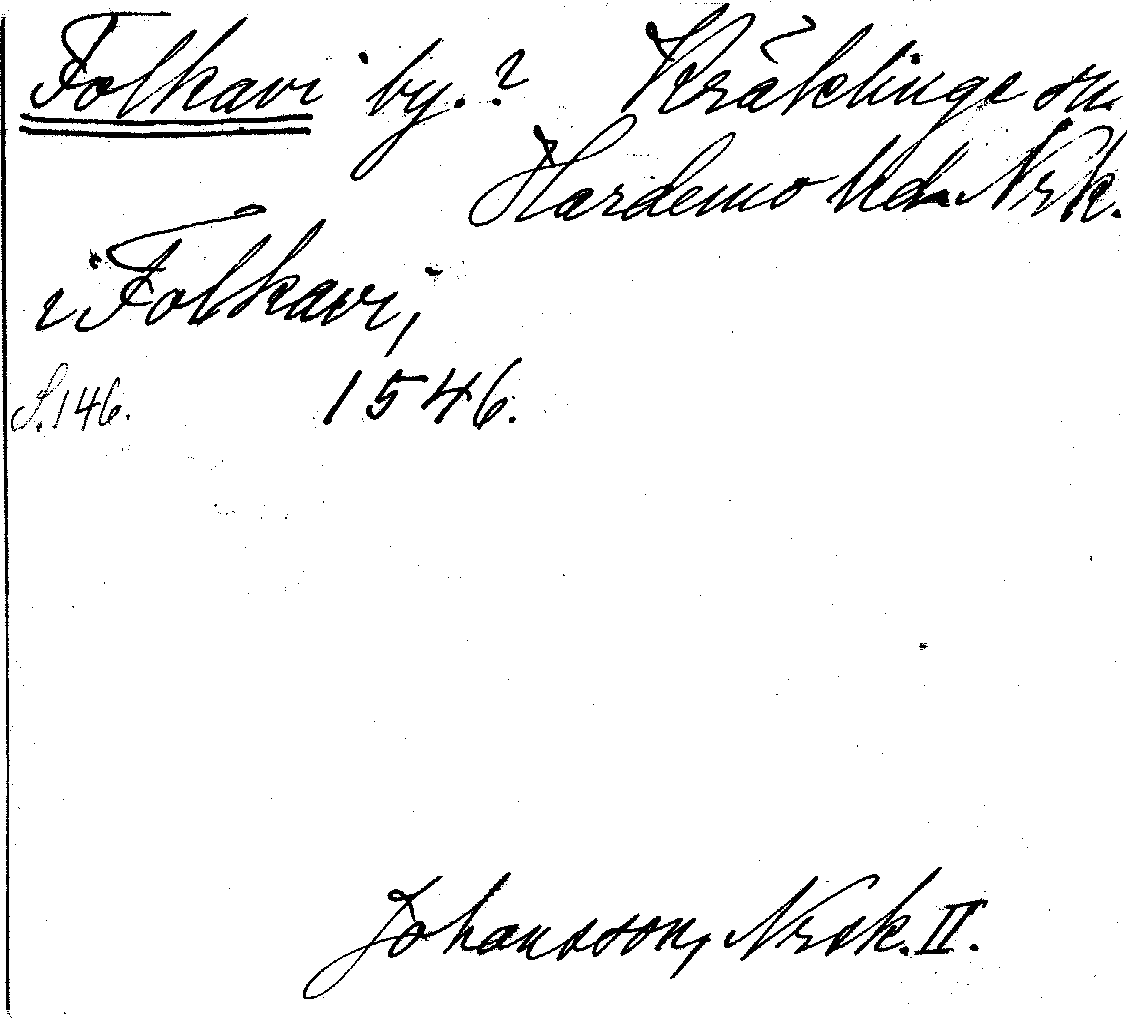 Folkavi by.? Kräklinge sn.
Hardemo hd. Nrk.
i Folkavi,
S. 146. 1546.
Johansson, Nrsk. II.